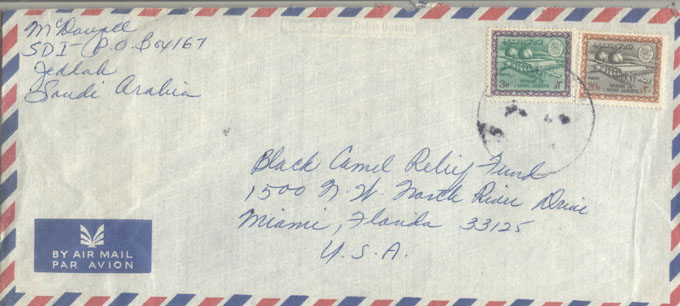 McDowell
SDI - P.O. Box 167
Jeddah
Saudi Arabia
Black Camel Relief Fund
1500 N.W. North River Drive
Miami, Florida 33125
U.S.A.
BY AIR MAIL
PAR AVION